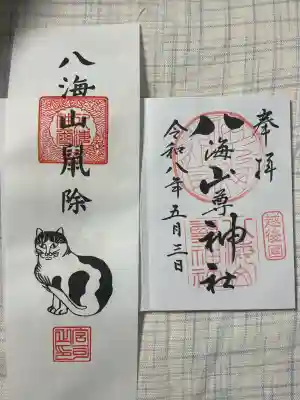 八海山鼠除
奉拝
八海山尊神社
令和八年五月三日
越後国